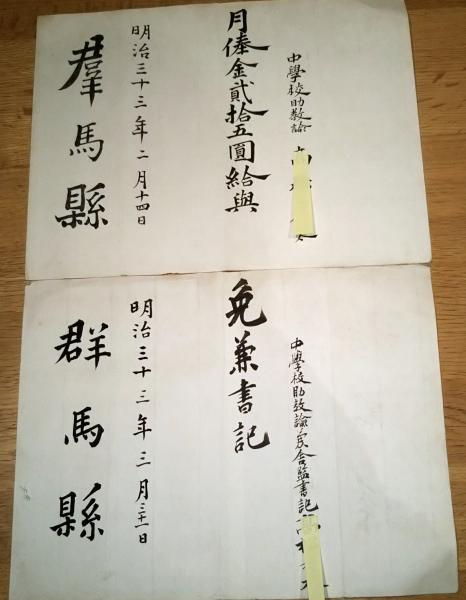 中學校助教諭
月俸金貳拾五圓給與
明治三十三年二月十四日
羣馬縣
中學校助教諭兼舎監書記
免兼書記
明治三十三年三月三十一日
群馬縣